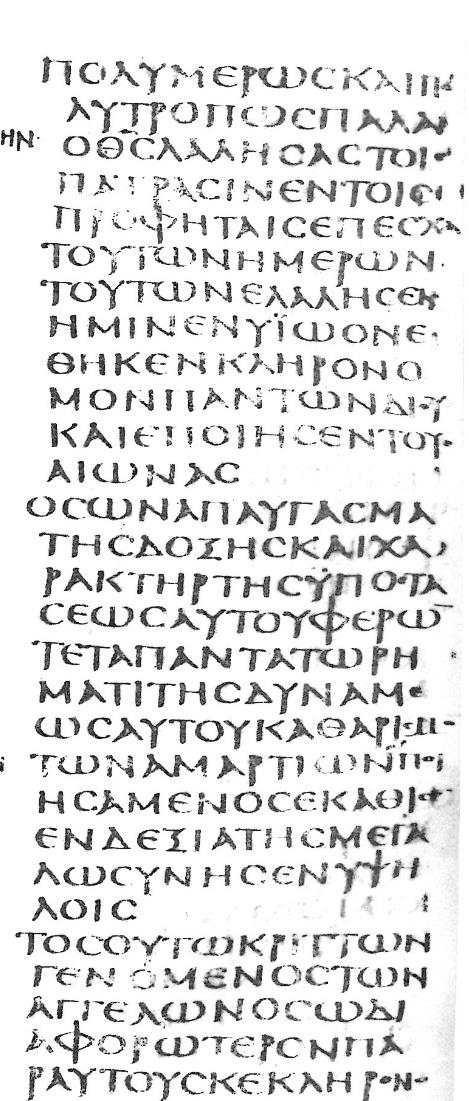 ΠΟΛΥΜΕΡΩϹΚΑΙΠ
ΛΥΤΡΟΠΩϹΠΑΛΑΙ
ΗΝ ΟΘ̅Ϲ̅ΛΑΛΗϹΑϹΤΟΙ
ΠΑΤΡΑϹΙΝΕΝΤΟΙϹ
ΠΡΟΦΗΤΑΙϹΕΠΕϹΧΑ
ΤΟΥΤΩΝΗΜΕΡΩΝ
ΤΟΥΤΩΝΕΛΑΛΗϹΕΝ
ΗΜΙΝΕΝΥΪΩΟΝΕ
ΘΗΚΕΝΚΛΗΡΟΝΟ
ΜΟΝΠΑΝΤΩΝΔΙΟΥ
ΚΑΙΕΠΟΙΗϹΕΝΤΟΥ
ΑΙΩΝΑϹ
ΟϹΩΝΑΠΑΥΓΑϹΜΑ
ΤΗϹΔΟΞΗϹΚΑΙΧΑ
ΡΑΚΤΗΡΤΗϹΫΠΟΤΑ
ϹΕΩϹΑΥΤΟΥΦΕΡΩ̅
ΤΕΤΑΠΑΝΤΑΤΩΡΗ
ΜΑΤΙΤΗϹΔΥΝΑΜΕ
ΩϹΑΥΤΟΥΚΑΘΑΡΙϹΜ
ΤΩΝΑΜΑΡΤΙΩΝΠΟΙ
ΗϹΑΜΕΝΟϹΕΚΑΘΙϹ
ΕΝΔΕΞΙΑΤΗϹΜΕΓΑ
ΛΩϹΥΝΗϹΕΝΥΨΗ
ΛΟΙϹ
ΤΟϹΟΥΤΩΚΡΙΤΤΩΝ
ΓΕΝΟΜΕΝΟϹΤΩΝ
ΑΓΓΕΛΩΝΟϹΩΔΙ
ΑΦΟΡΩΤΕΡΟΝΠΑ
ΡΑΥΤΟΥϹΚΕΚΛΗΡΟΝ